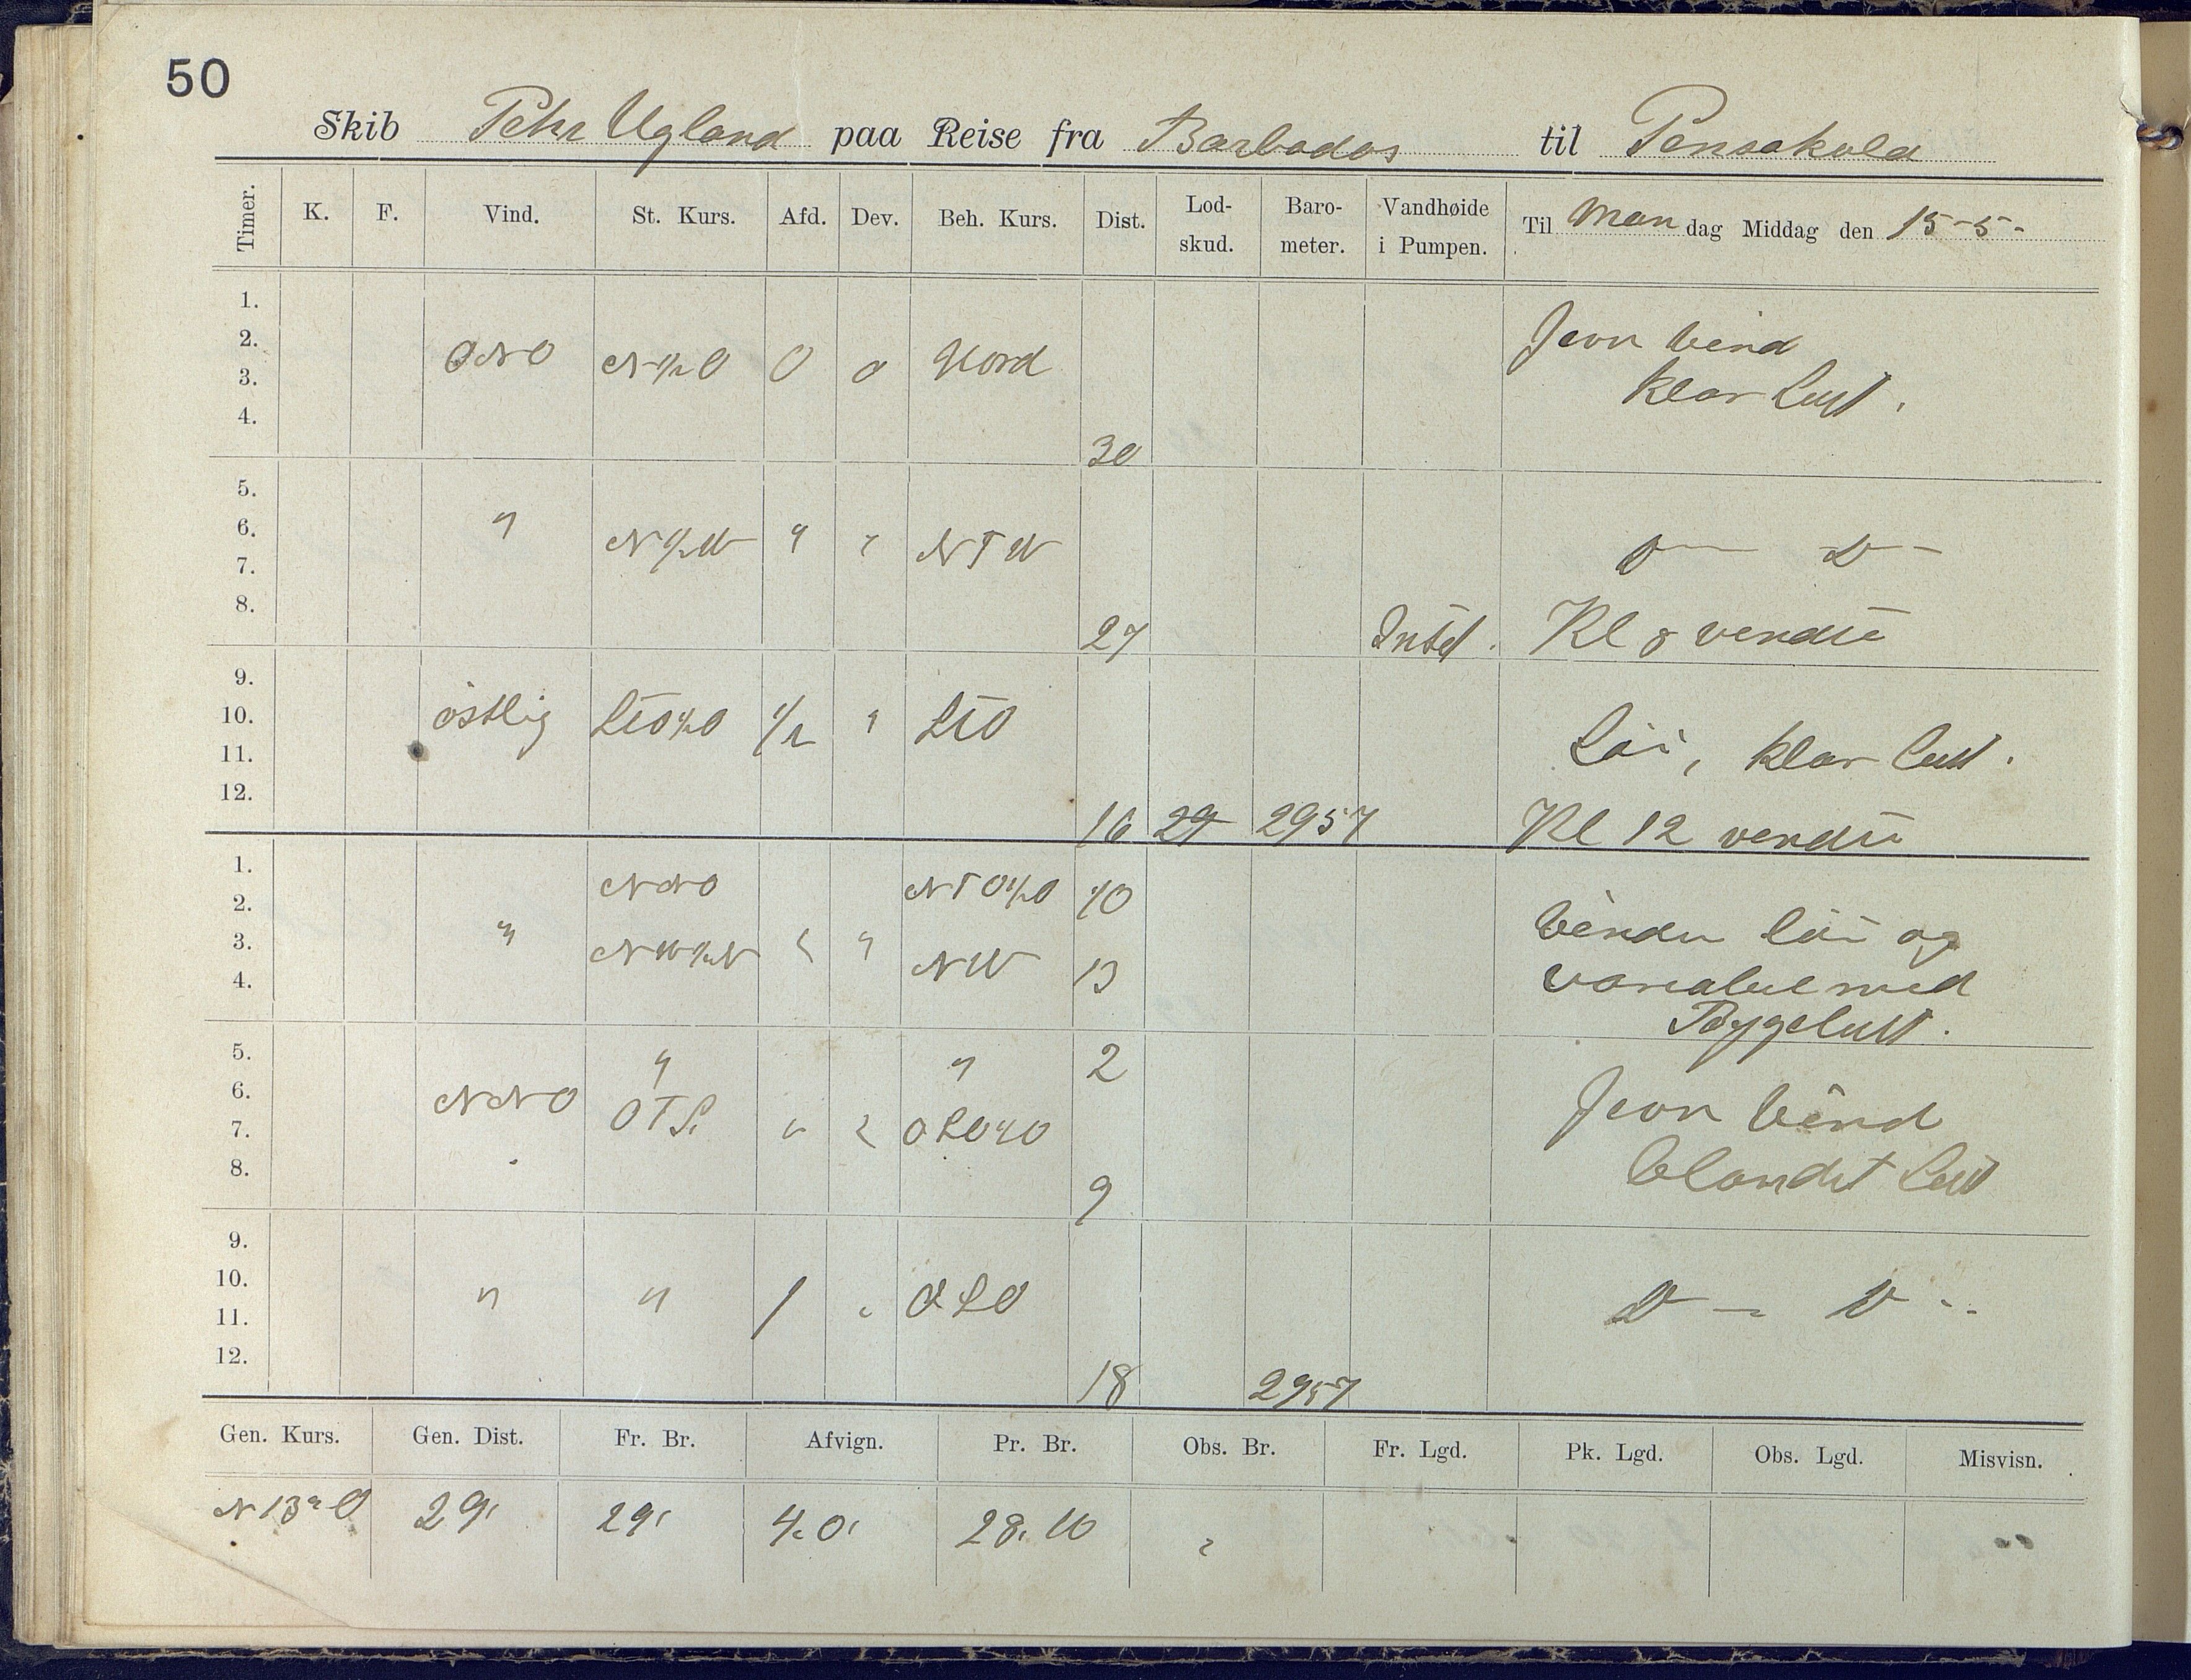 50
Skib Pehr Ugland paa Reise fra Barbados til Pensakola
Timer. K. F. Vind. St. Kurs. Afd. Dev. Beh. Kurs. Dist. Lod-skud. Baro-meter. Vandhøide i Pumpen. Til Man dag Middag den 15-5-
1.
2. ONO N½O 0 0 Nord Jevn Vind
3. klar Luft.
4. 30
5.
6. " N½W " " NTW D — D —
7.
8. 27 Intet. Kl 8 vendte
9.
10. östlig STO½O ½ " STO Löi, klar Luft.
11.
12. 16 29 2957 Kl 12 vendte
1. NNO NTO½O 10
2. Vinden löi og
3. " NW½N " " NW 13 variabel med
4. Bygeluft.
5. " " 2
6. NNO OTS " " OSO½O Jevn Vind
7. blandet Luft
8. 9
9.
10. " " 1 " OSO D — D --
11.
12. 18 2957
Gen. Kurs. Gen. Dist. Fr. Br. Afvign. Pr. Br. Obs. Br. Fr. Lgd. Pk. Lgd. Obs. Lgd. Misvisn.
N 13° O 29' 29' 28.10 "